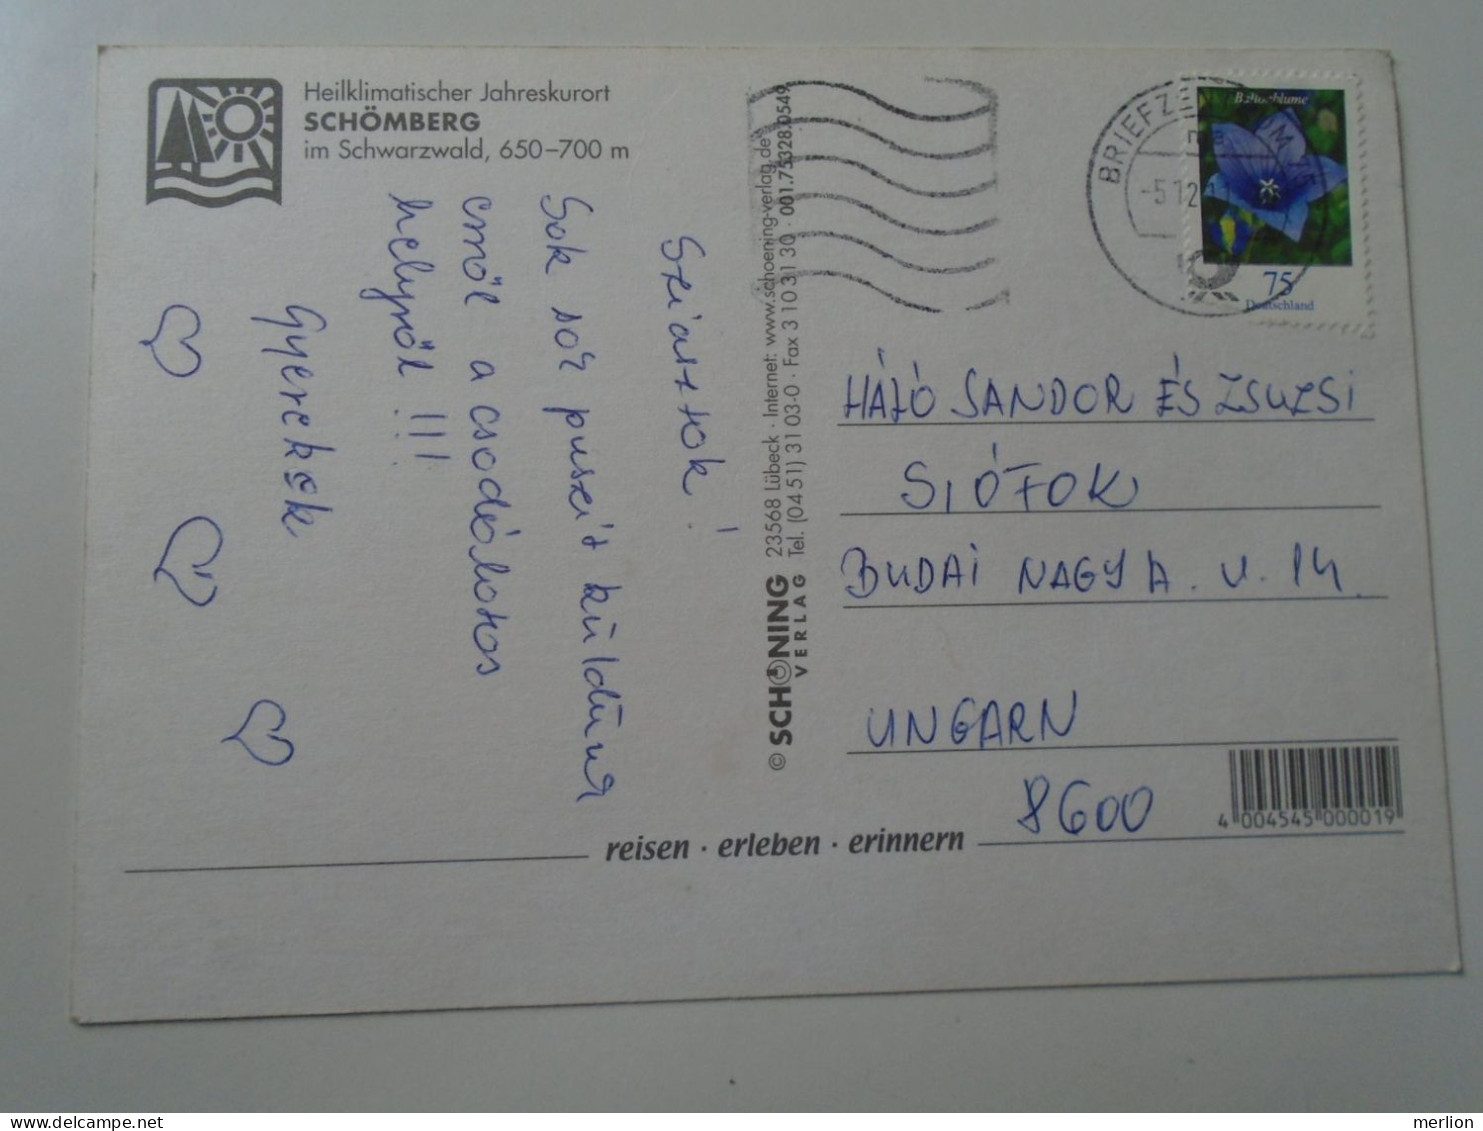 Heilklimatischer Jahreskurort
SCHÖMBERG
im Schwarzwald, 650–700 m
Sziasztok!
Sok sok puszit küldünk
erről a csodálatos
helyről!!!
Gyerekek
© SCHÖNING
VERLAG
23568 Lübeck · Internet: www.schoening-verlag.de
Tel. (0451) 3103-0 · Fax 3103130 · 001.75328.0549
BRIEFZ
-5.12
Ballonblume
75
Deutschland
HÁJÓ SANDOR ÉS ZSUZSI
SIÓFOK
BUDAI NAGY A. U. 14.
UNGARN
8600
4 004545 000019
reisen · erleben · erinnern
merlion